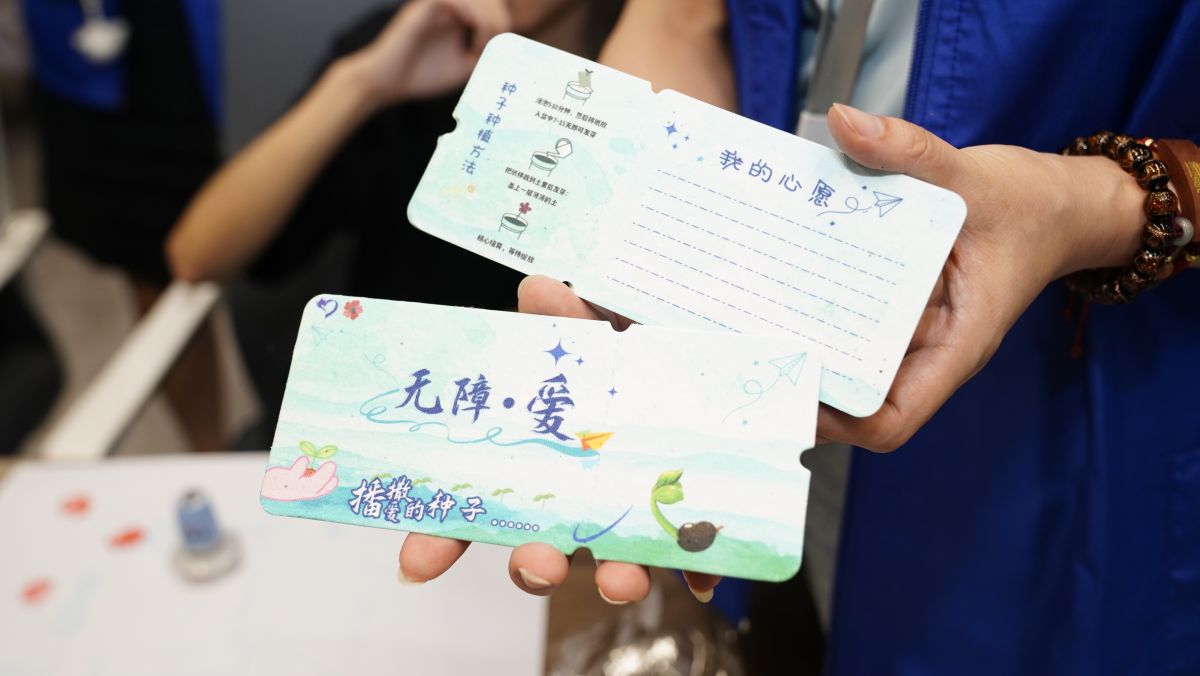 种子种植方法
浸泡5-10分钟，然后将纸放
入盆中7-15天即可发芽
把纸移栽到土里后发芽；
盖上一层薄薄的土
精心培育，等待绽放
我的心愿
无障·爱
播撒爱的种子……